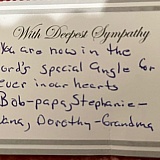 With Deepest Sympathy
You are now in the
ord's special angle for
ever in our hearts
Bob-papa, Stephanie-
Dorothy-Grandma